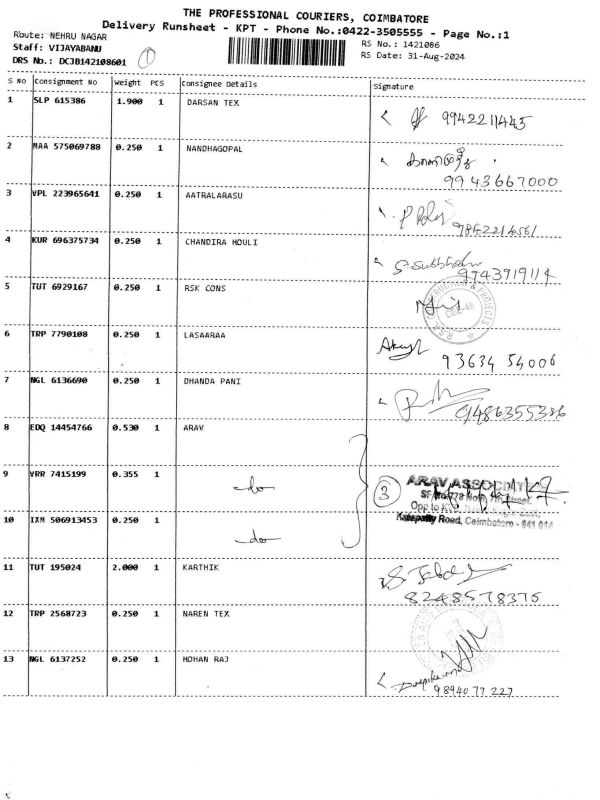 THE PROFESSIONAL COURIERS, COIMBATORE
Delivery Runsheet - KPT - Phone No.:0422-3505555 - Page No.:1
Route: NEHRU NAGAR
Staff: VIJAYABANU
DRS No.: DCJB142108601
1
RS No.: 1421086
RS Date: 31-Aug-2024
S NO Consignment No Weight PCS Consignee Details Signature
1 SLP 615386 1.900 1 DARSAN TEX
9942211445
2 MAA 575069788 0.250 1 NANDHAGOPAL
9943667000
3 VPL 223965641 0.250 1 AATRALARASU
9842214561
4 KUR 696375734 0.250 1 CHANDIRA MOULI
9743719114
5 TUT 6929167 0.250 1 RSK CONS
6 TRP 7790108 0.250 1 LASAARAA
93634 54006
7 NGL 6136690 0.250 1 DHANDA PANI
9486355386
8 EDQ 14454766 0.530 1 ARAV
9 VRR 7415199 0.355 1 -do-
3 ARAV ASSOCIATE
10 IXM 506913453 0.250 1 -do-
Opp to
Kalapatty Road, Coimbatore - 641 014
11 TUT 195024 2.000 1 KARTHIK
8248578375
12 TRP 2568723 0.250 1 NAREN TEX
13 NGL 6137252 0.250 1 MOHAN RAJ
Deepika
98940 77 227